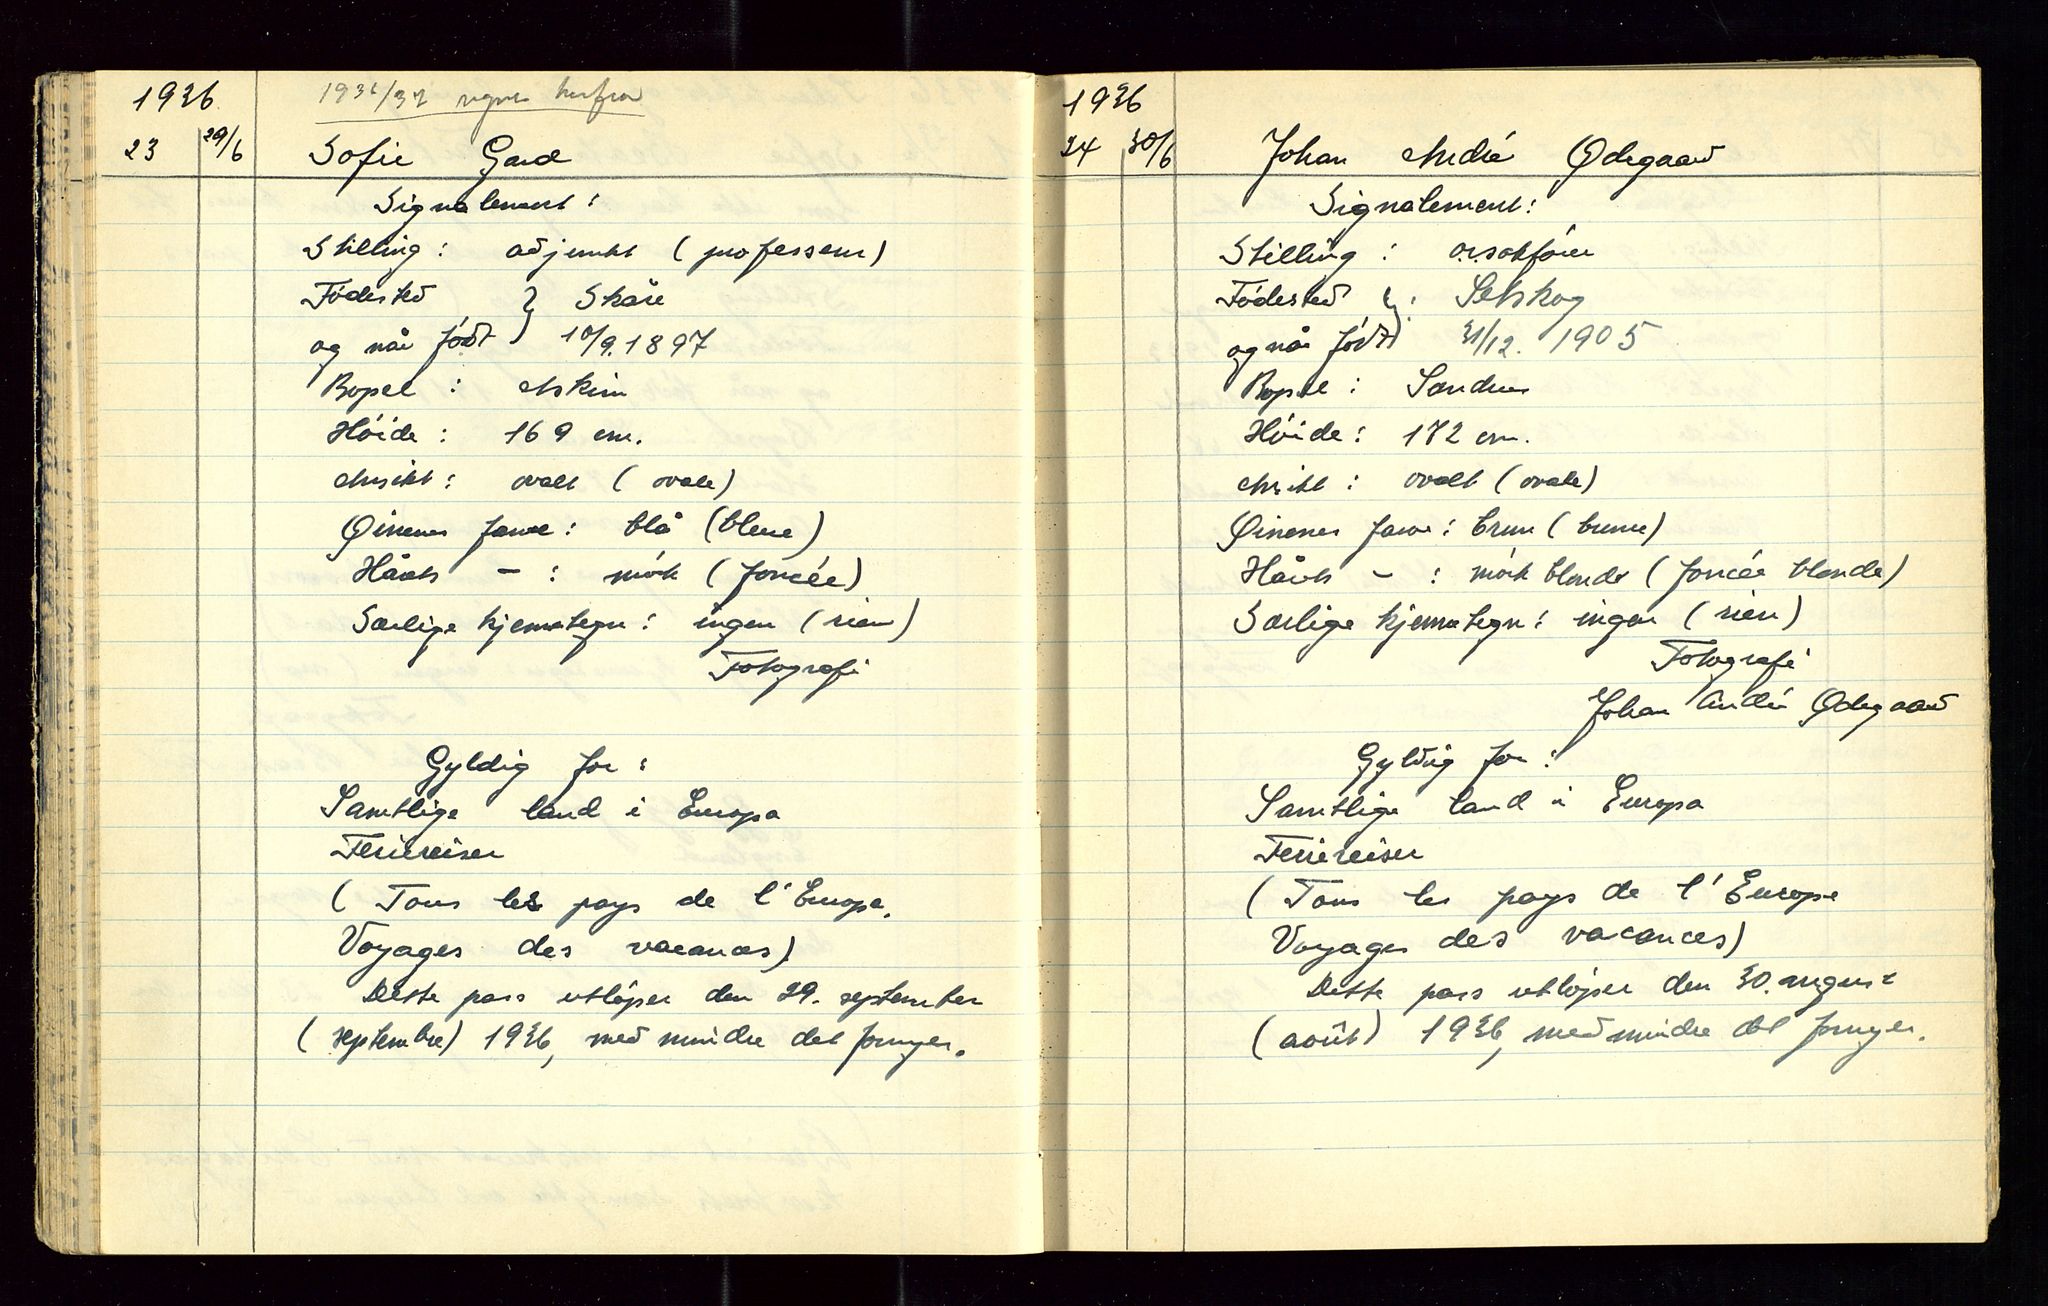 1936.
1936/37 regnes herfra
23 29/6 Sofie Gard
Signalement:
Stilling: adjunkt (professeur)
Fødested } Skåre
og når født } 10/9.1897
Bopel: Askim
Høide: 169 cm.
Ansikt: ovalt (ovale)
Øinenes farve: blå (bleue)
Hårets — : mørk (foncée)
Særlige kjennetegn: ingen (rien)
Fotografi
Gyldig for:
Samtlige land i Europa
Feriereiser
(Tous les pays de l'Europe.
Voyages des vacances)
Dette pass utløper den 29. september
(septembre) 1936, med mindre det fornyes.
1936
24 30/6 Johan André Ødegaard
Signalement:
Stilling: o.r.sakfører
Fødested }: Setskog
og når født } 31/12. 1905
Bopel: Sandnes
Høide: 172 cm.
Ansikt: ovalt (ovale)
Øinenes farve: brun (brune)
Hårets — : mørk blondt (foncée blonde)
Særlige kjennetegn: ingen (rien)
Fotografi
Johan André Ødegaard
Gyldig for:
Samtlige land i Europa
Feriereiser
(Tous les pays de l'Europe
Voyages des vacances)
Dette pass utløper den 30. august
(août) 1936, med mindre det fornyes.